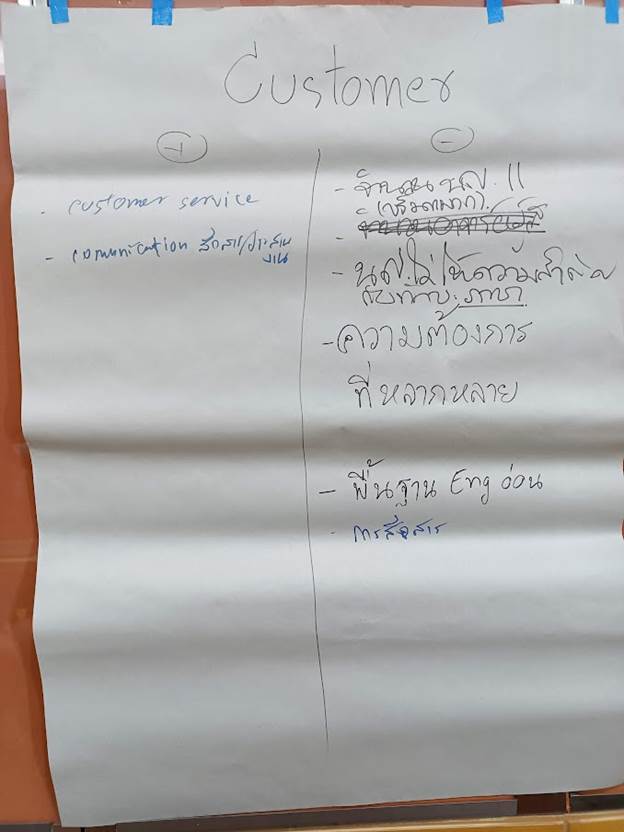 Customer
+
- customer service
- comunication สื่อสาร/ประสาน
งาน
-
- จำนวน นศ. !!
(ปริมาณมาก).
- นศ.ไม่ให้ความสำคัญ
กับทักษะ ภาษา
- ความต้องการ
ที่หลากหลาย
- พื้นฐาน Eng อ่อน
- การสื่อสาร